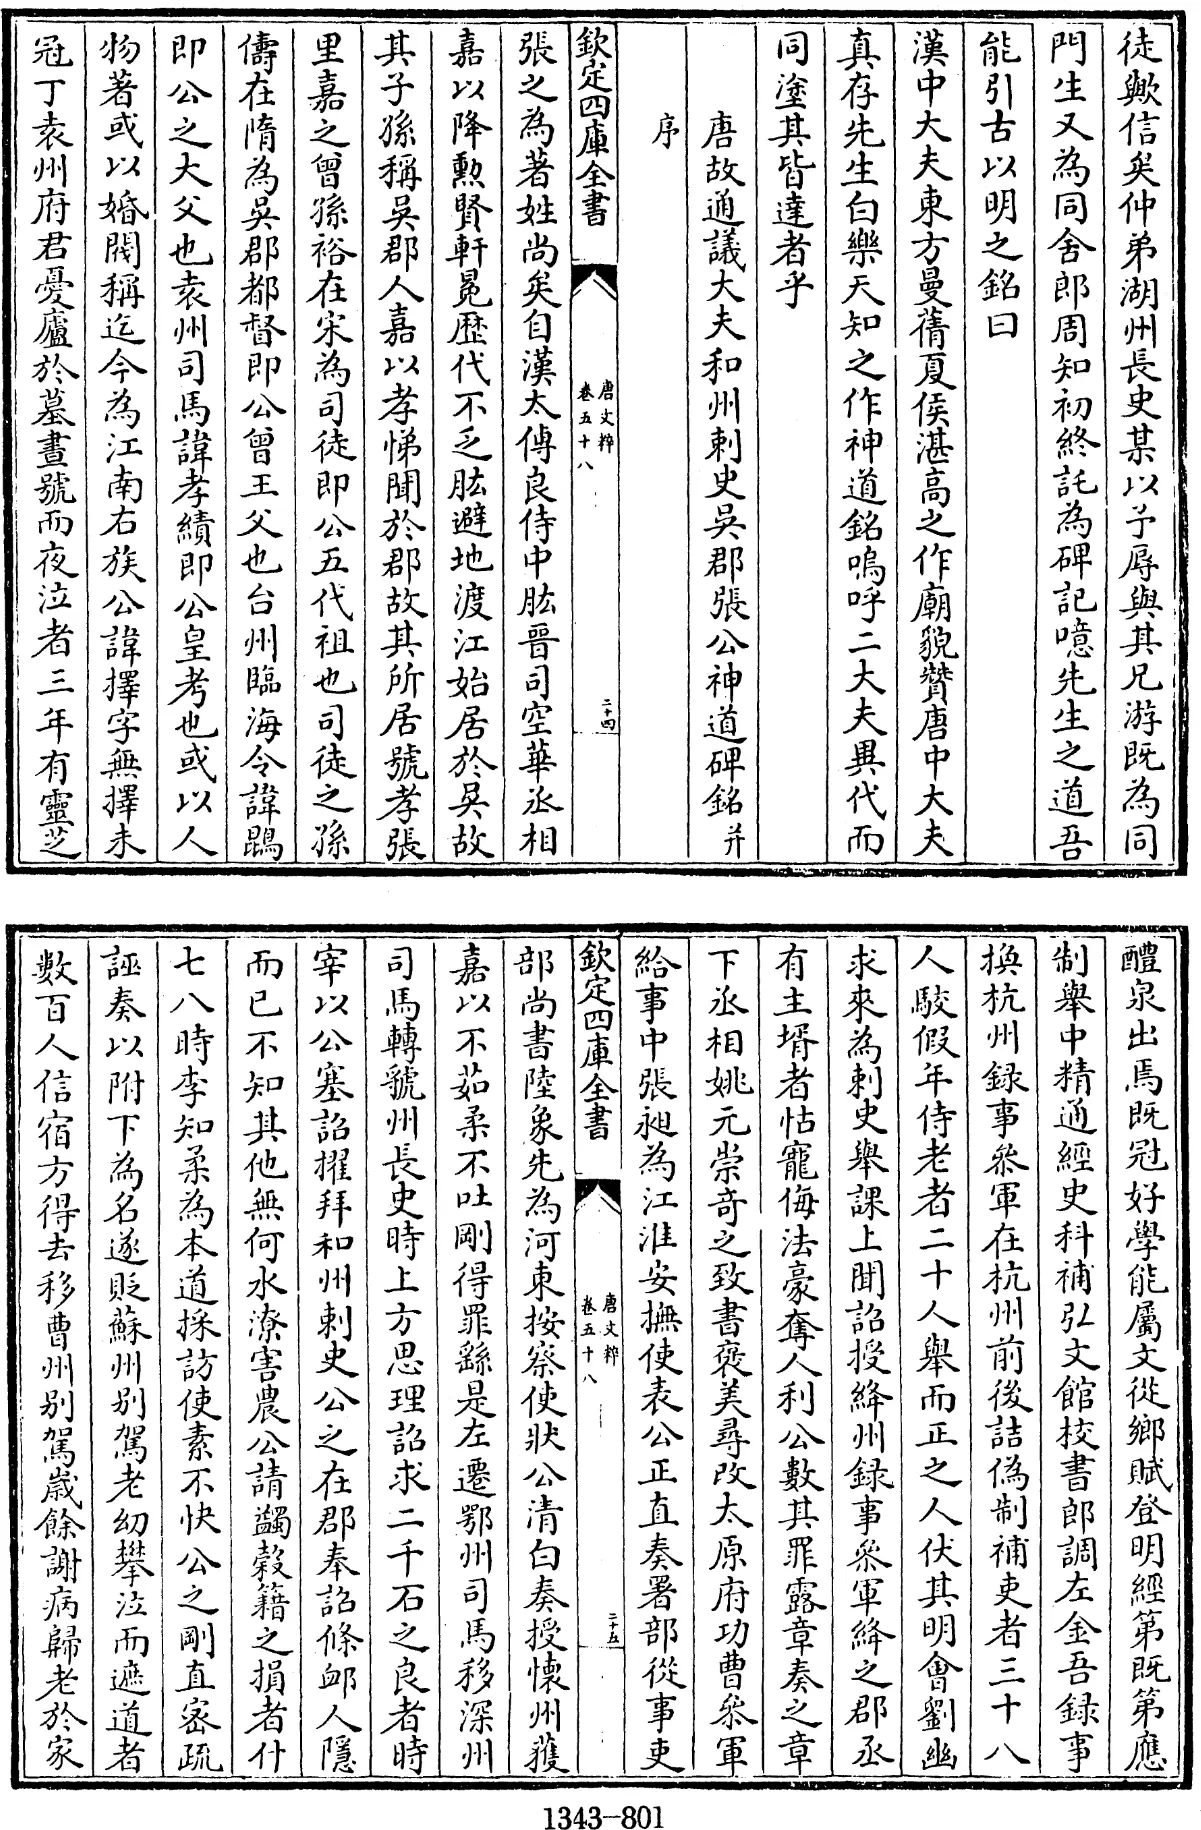 徒歟信矣仲弟湖州長史某以予辱與其兄游既為同
門生又為同舍郎周知初終託為碑記噫先生之道吾
能引古以明之銘曰
漢中大夫東方曼蒨夏侯湛高之作廟貌贊唐中大夫
真存先生白樂天知之作神道銘嗚呼二大夫異代而
同塗其皆達者乎
唐故通議大夫和州刺史吳郡張公神道碑銘并
序
欽定四庫全書
唐文粹
卷五十八
二十四
張之為著姓尚矣自漢太傅良侍中肱晉司空華丞相
嘉以降勲賢軒冕歴代不乏肱避地渡江始居於吳故
其子孫稱吳郡人嘉以孝悌聞於郡故其所居號孝張
里嘉之曾孫裕在宋為司徒即公五代祖也司徒之孫
儔在隋為吳郡都督即公曾王父也台州臨海令諱鶥
即公之大父也袁州司馬諱孝績即公皇考也或以人
物著或以婚閥稱迄今為江南右族公諱擇字無擇未
冠丁袁州府君憂廬於墓晝號而夜泣者三年有靈芝
醴泉出焉既冠好學能屬文從鄉賦登明經第既第應
制舉中精通經史科補弘文館校書郎調左金吾録事
換杭州録事叅軍在杭州前後詰偽制補吏者三十八
人駮假年侍老者二十人舉而正之人伏其明會劉幽
求來為刺史舉課上聞詔授絳州録事叅軍絳之郡丞
有主壻者怙寵侮法豪奪人利公數其罪露章奏之章
下丞相姚元崇奇之致書褒美尋改太原府功曹叅軍
給事中張昶為江淮安撫使表公正直奏署部從事吏
欽定四庫全書
唐文粹
卷五十八
二十五
部尚書陸象先為河東按察使狀公清白奏授懷州獲
嘉以不茹柔不吐剛得罪繇是左遷鄂州司馬移深州
司馬轉虢州長史時上方思理詔求二千石之良者時
宰以公塞詔擢拜和州刺史公之在郡奉詔條卹人隱
而已不知其他無何水潦害農公請蠲榖籍之損者什
七八時李知柔為本道採訪使素不快公之剛直宻疏
誣奏以附下為名遂貶蘇州别駕老幼攀泣而遮道者
數百人信宿方得去移曹州别駕嵗餘謝病歸老於家
1343-801